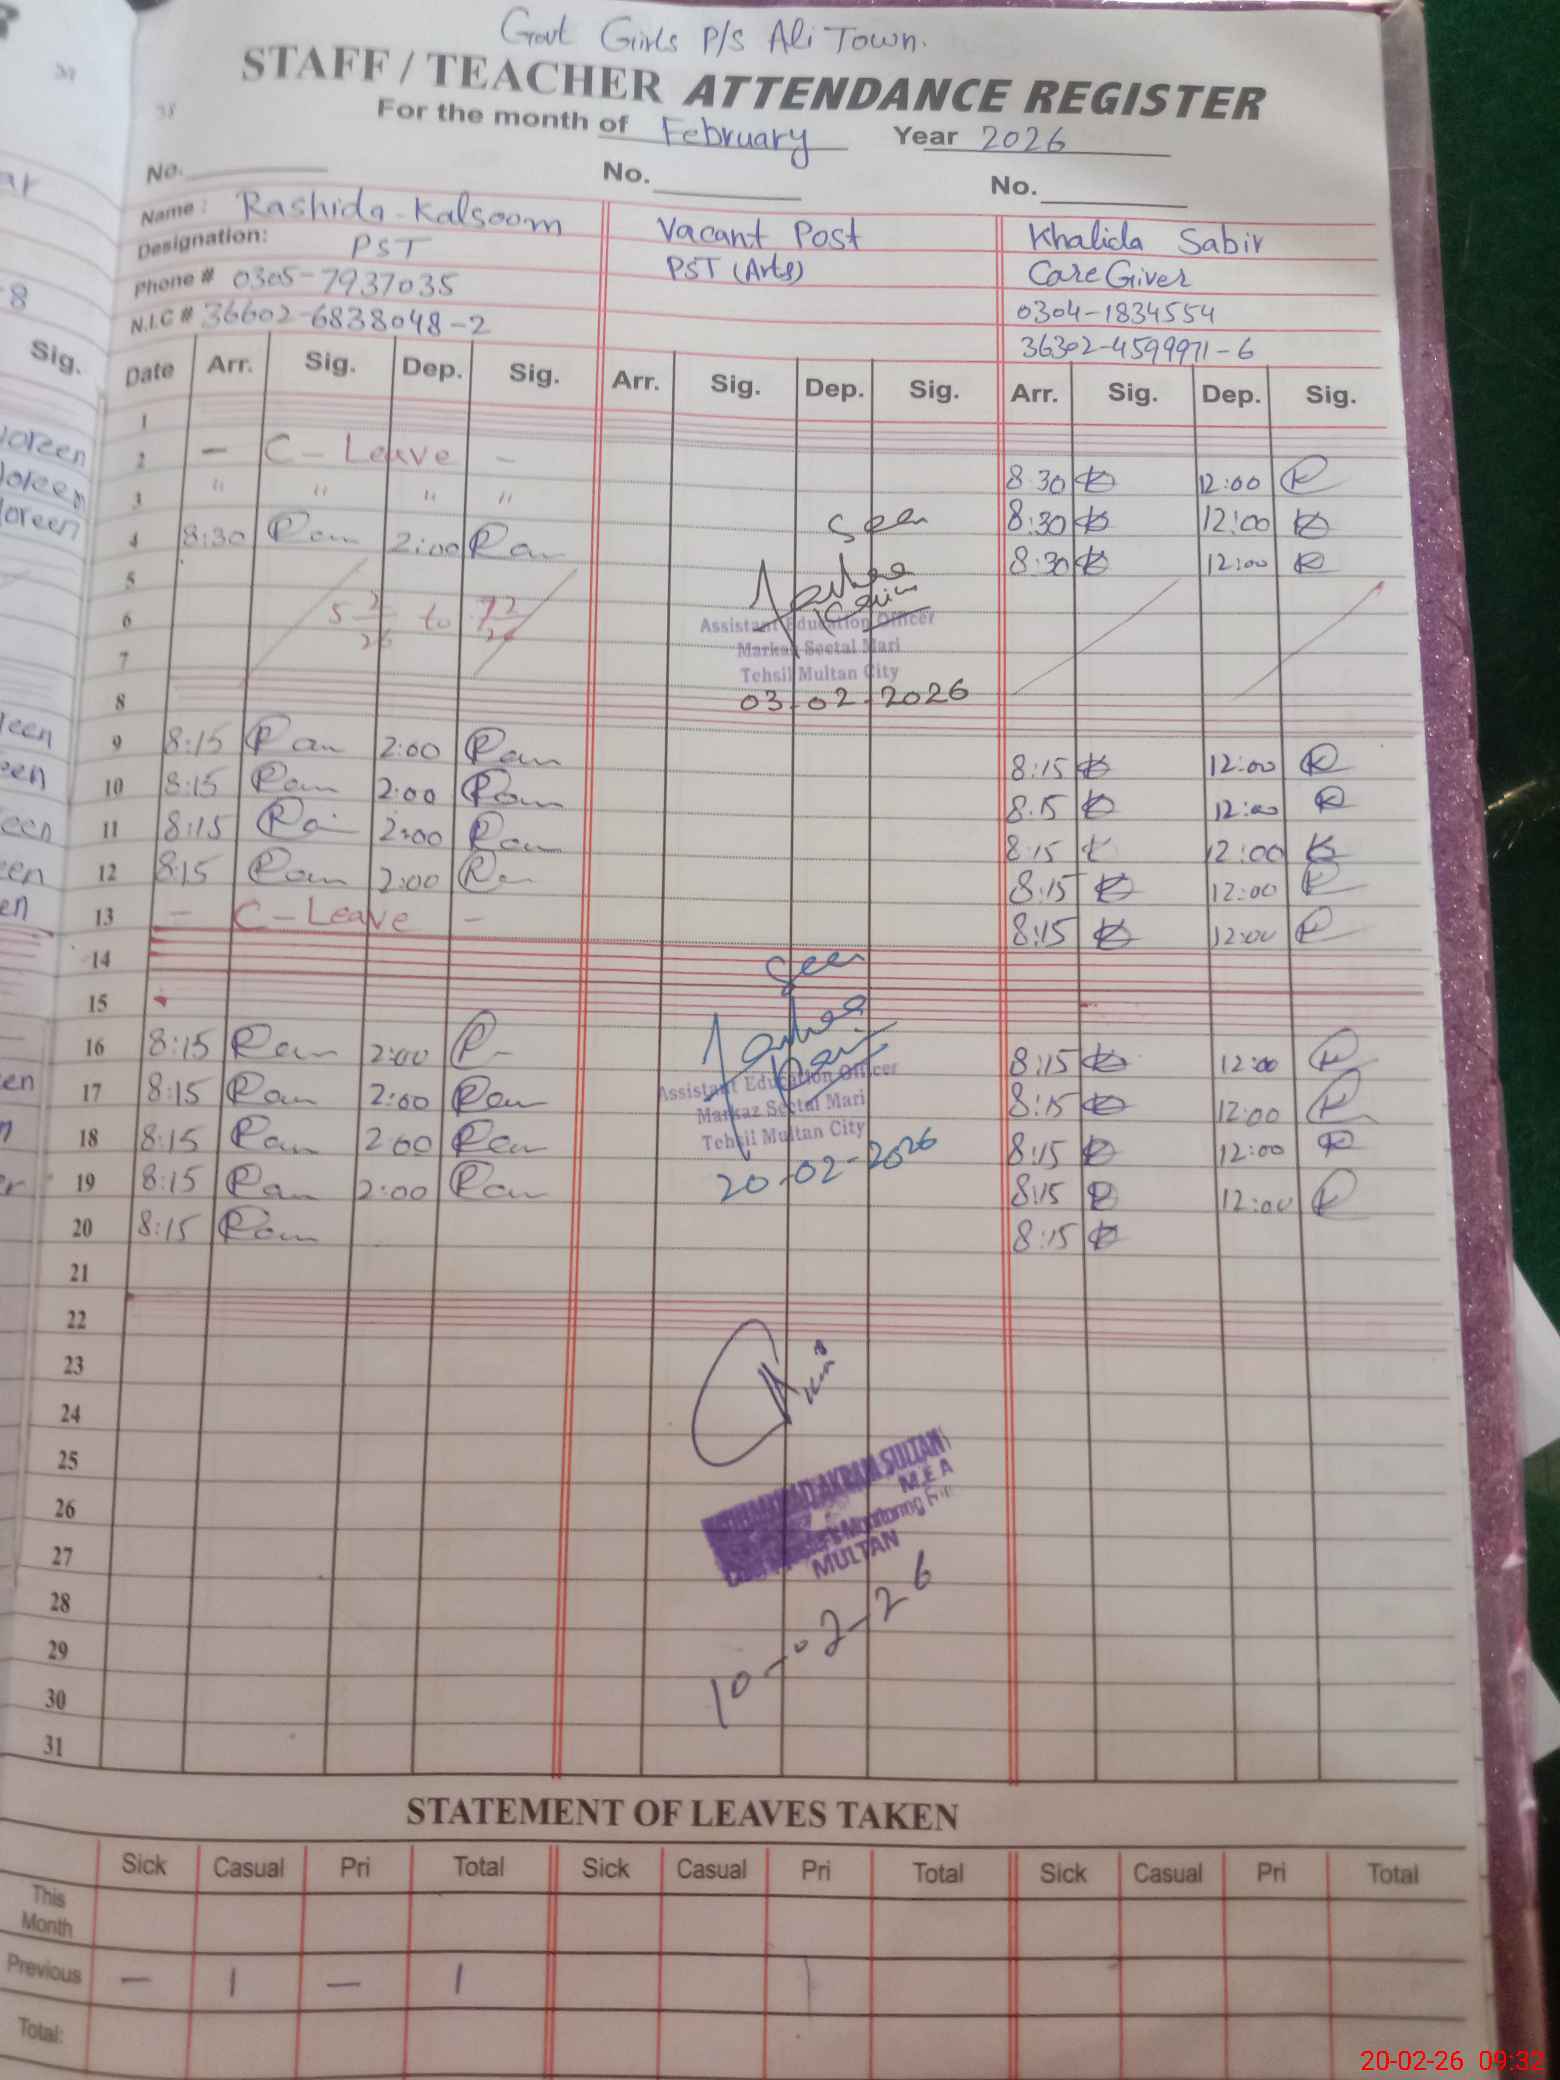 Govt Girls P/S Ali Town.
STAFF / TEACHER ATTENDANCE REGISTER
For the month of February Year 2026
No. No. No.
Name: Rashida Kalsoom Vacant Post Khalida Sabir
Designation: PST PST (Arts) Care Giver
Phone # 0305-7937035 0304-1834554
N.I.C # 36602-6838048-2 36302-4599971-6
Sig. Date Arr. Sig. Dep. Sig. Arr. Sig. Dep. Sig. Arr. Sig. Dep. Sig.
1
2 — C - Leave — 8:30 12:00
3 " " " " 8:30 12:00
4 8:30 2:00 Seen 8:30 12:00
5
6 5 2/26 to 7 2/26
Assistant Education Officer
7 Markaz Seetal Mari
Tehsil Multan City
8 03-02-2026
9 8:15 2:00 8:15 12:00
10 8:15 2:00 8:15 12:00
11 8:15 2:00 8:15 12:00
12 8:15 2:00 8:15 12:00
13 — C - Leave — 8:15 12:00
14 Seen
15
16 8:15 2:00 8:15 12:00
Assistant Education Officer
17 8:15 2:00 8:15 12:00
Markaz Seetal Mari
18 8:15 2:00 8:15 12:00
Tehsil Multan City
19 8:15 2:00 20-02-2026 8:15 12:00
20 8:15 8:15
21
22
23
24
25
AKRAM SULTAN
M.E.A
26
Monitoring
27 MULTAN
28
29 10-02-26
30
31
STATEMENT OF LEAVES TAKEN
Sick Casual Pri Total Sick Casual Pri Total Sick Casual Pri Total
This Month
Previous — 1 — 1
Total:
20-02-26 09:32